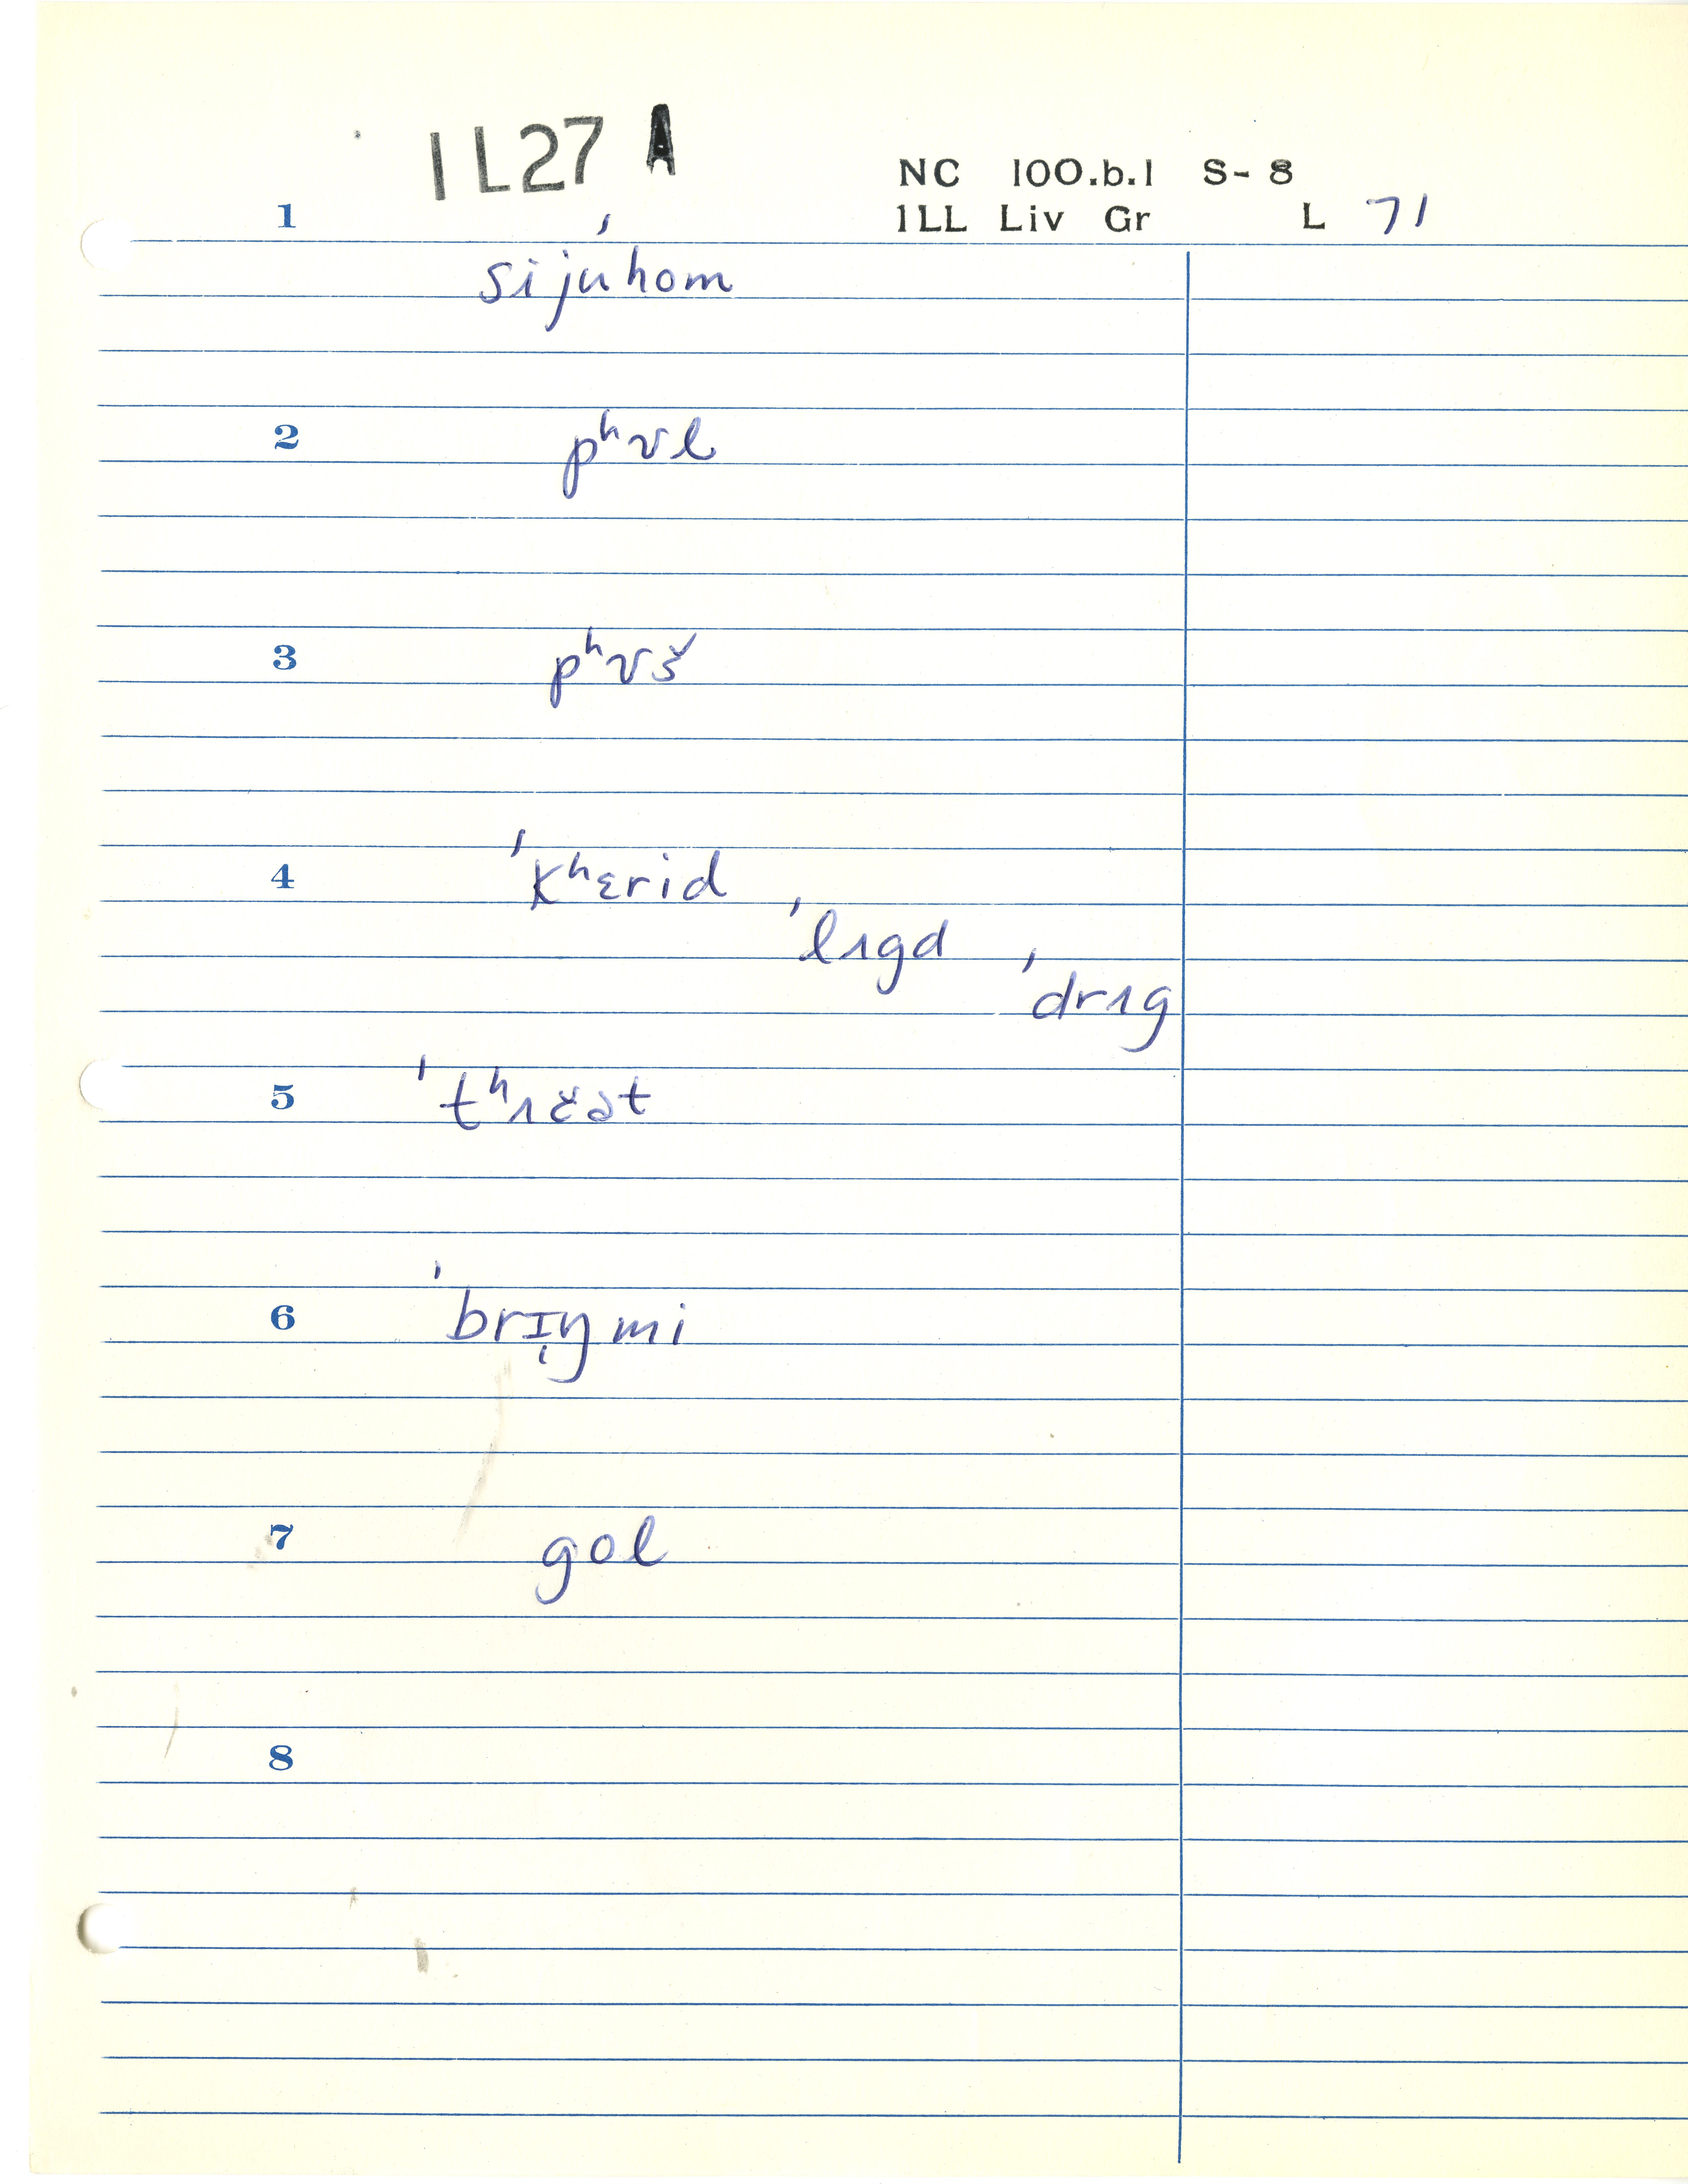 1L27 A
NC 100.b.1 S-8
1LL Liv Gr L 71
1
ˈsijuhom
2 pʰʊl
3 pʰʊš
4 ˈkʰɛrid
ˈlɪgd
ˈdrɪg
5 ˈtʰɪčət
6 ˈbrɪ̨ŋmi
7 gol
8